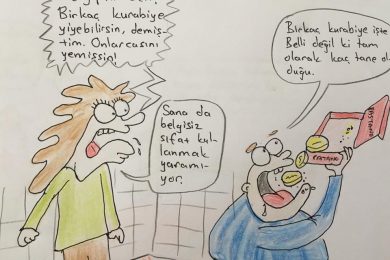 Birkaç kurabiye
yiyebilirsin, demiş-
tim. Onlarcasını
yemişsin!
Birkaç kurabiye işte
Belli değil ki tam
olarak kaç tane ol
duğu.
Sana da
belgisiz
sıfat kul-
lanmak
yaramı-
yor.